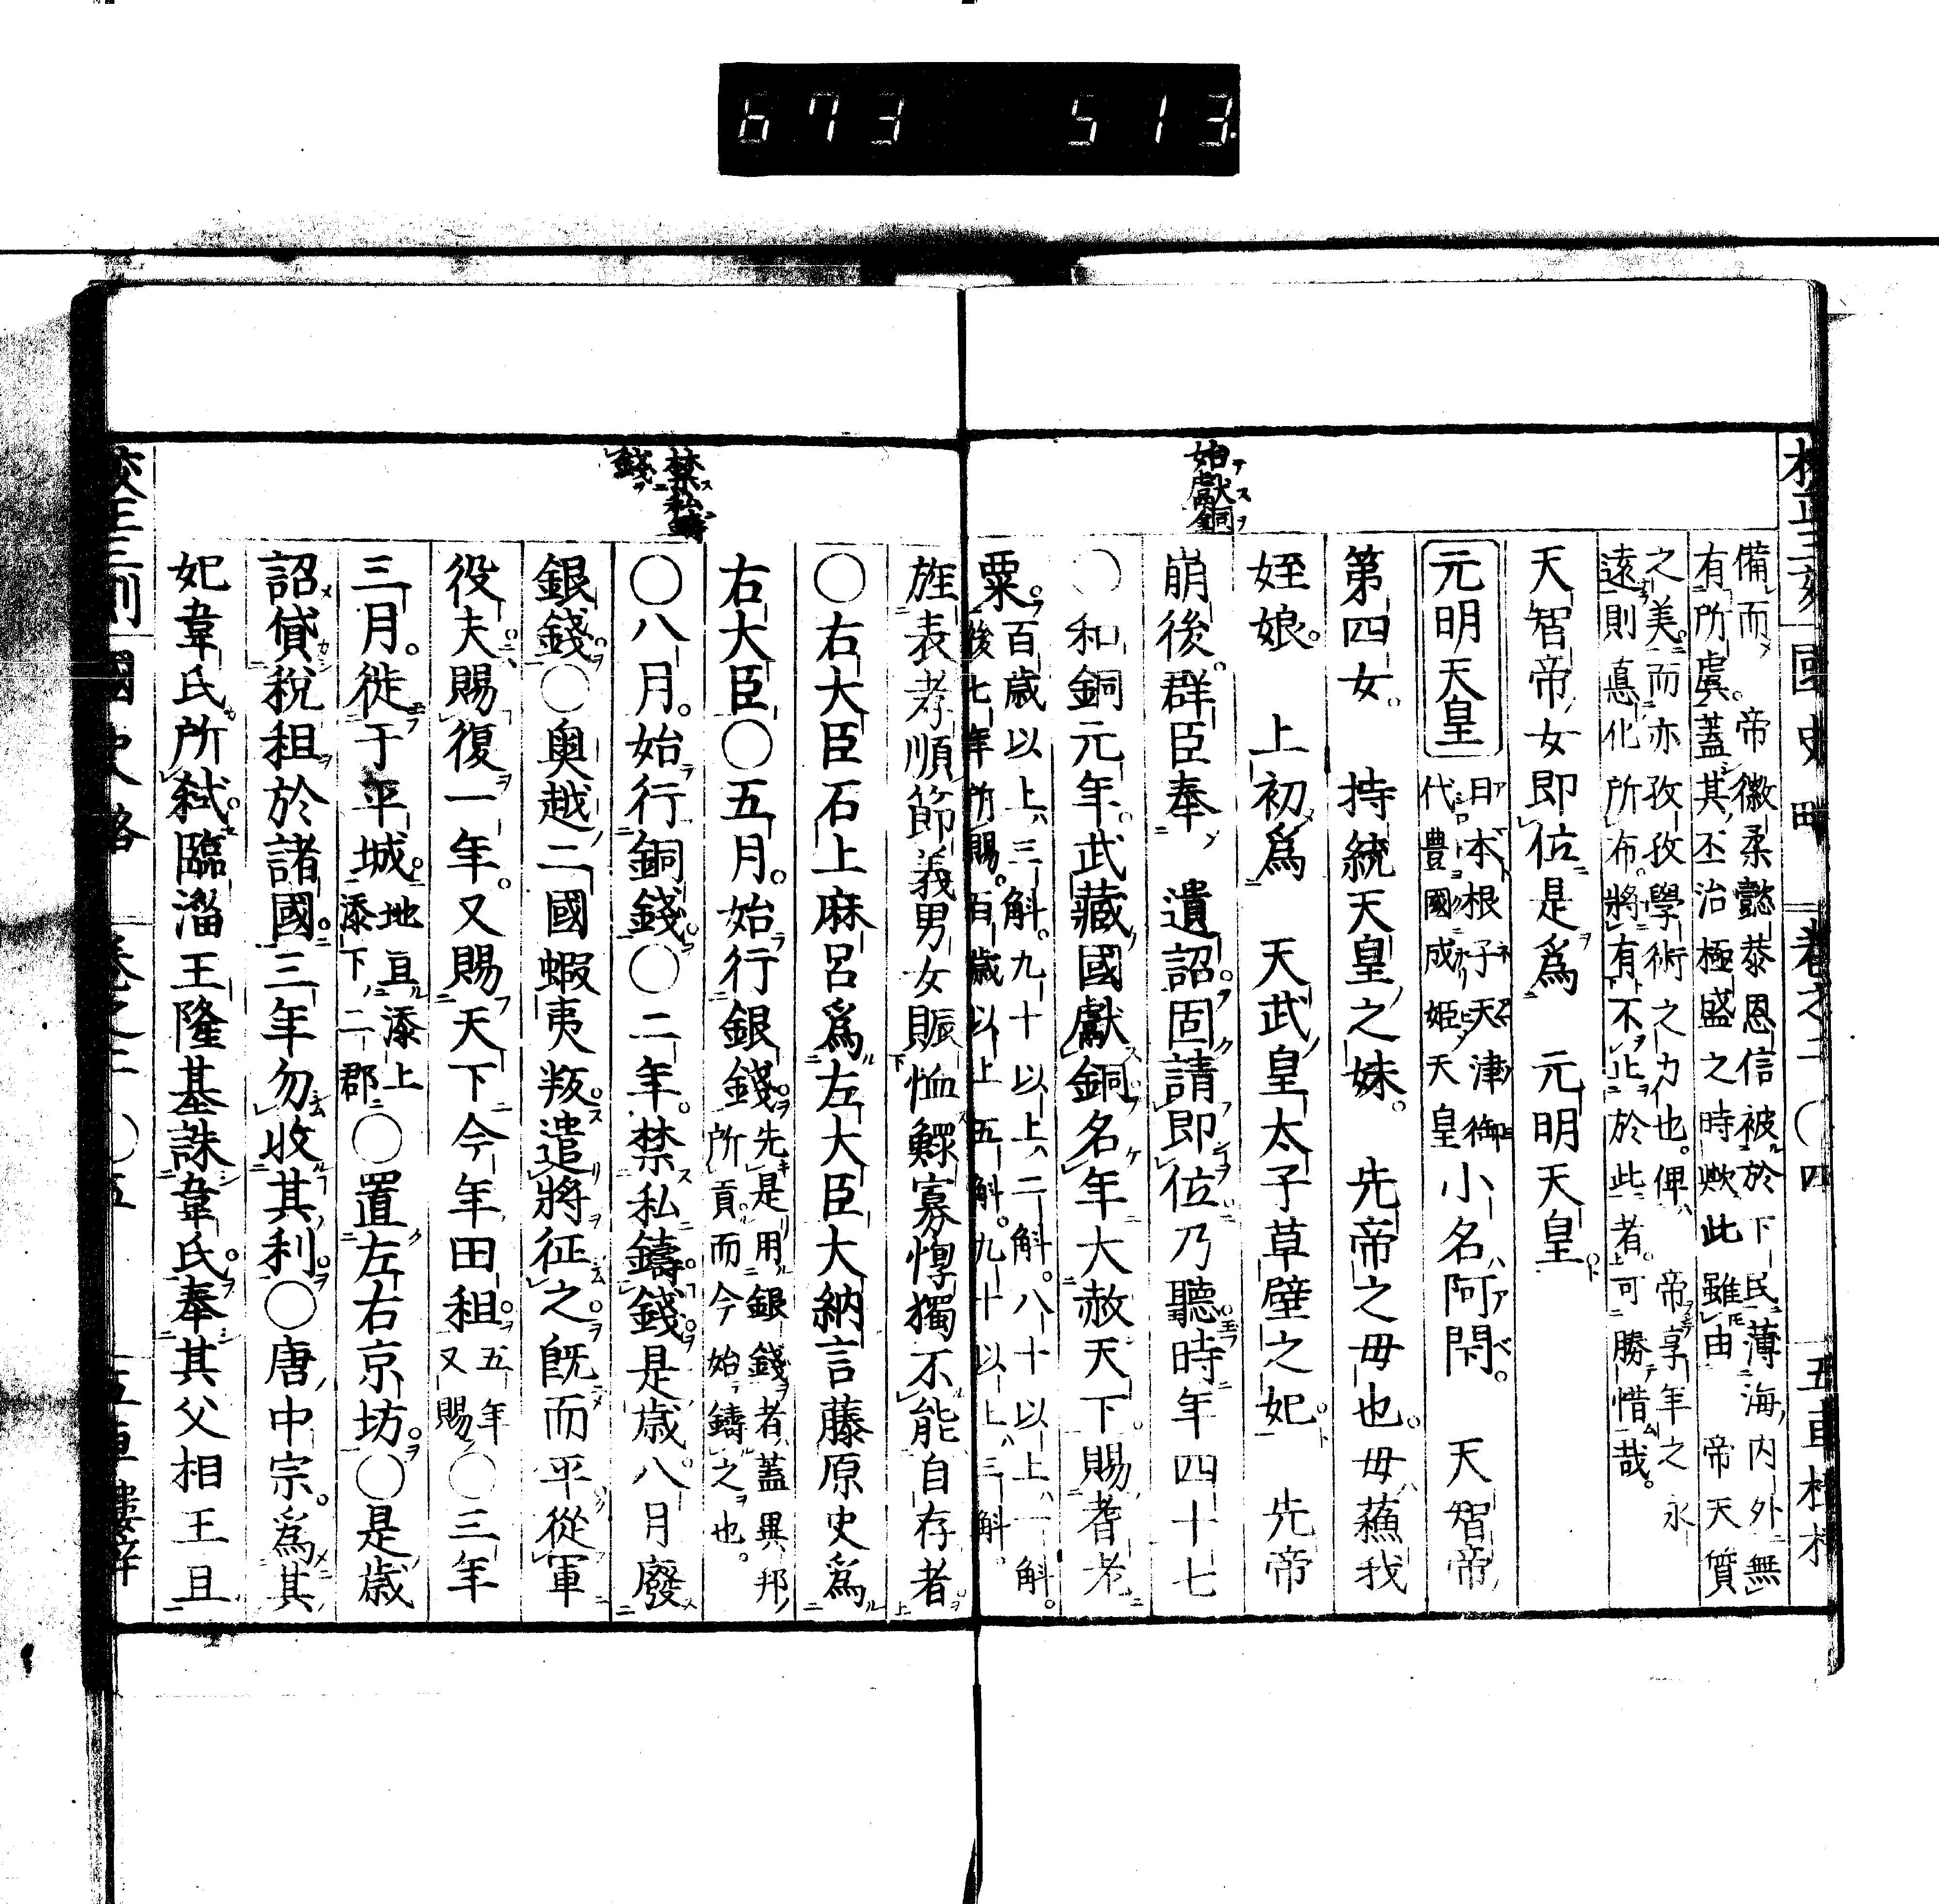 673 513
始獻銅
備而帝徽柔懿恭恩信被於下民薄海內外無
有所虞蓋其丕治極盛之時歟此雖由帝天質
之美而亦孜孜學術之力也俾帝享年之永
遠則悳化所布將有不止於此者可勝惜哉
天智帝女即位是爲元明天皇
元明天皇
日本根子天津御
代豐國成姬天皇
小名阿閇天智帝
第四女持統天皇之妹先帝之母也母蘓我
姪娘上初爲天武皇太子草壁之妃先帝
崩後群臣奉遺詔固請即位乃聽時年四十七
○和銅元年武藏國獻銅名年大赦天下賜耆老
粟
百歲以上三斛九十以上二斛八十以上一斛
後七年所賜百歲以上五斛九十以上三斛
禁私鑄錢
旌表孝順節義男女賑恤鰥寡惸獨不能自存者
○右大臣石上麻呂爲左大臣大納言藤原史爲
右大臣○五月始行銀錢
先是用銀錢者蓋異邦
所貢而今始鑄之也
○八月始行銅錢○二年禁私鑄錢是歲八月廢
銀錢○奧越二國蝦夷叛遣將征之既而平從軍
役夫賜復一年又賜天下今年田租
五年
又賜
○三年
三月徙于平城
地亘添上
添下二郡
○置左右京坊○是歲
詔貸稅租於諸國三年勿收其利○唐中宗爲其
妃韋氏所弒臨淄王隆基誅韋氏奉其父相王旦